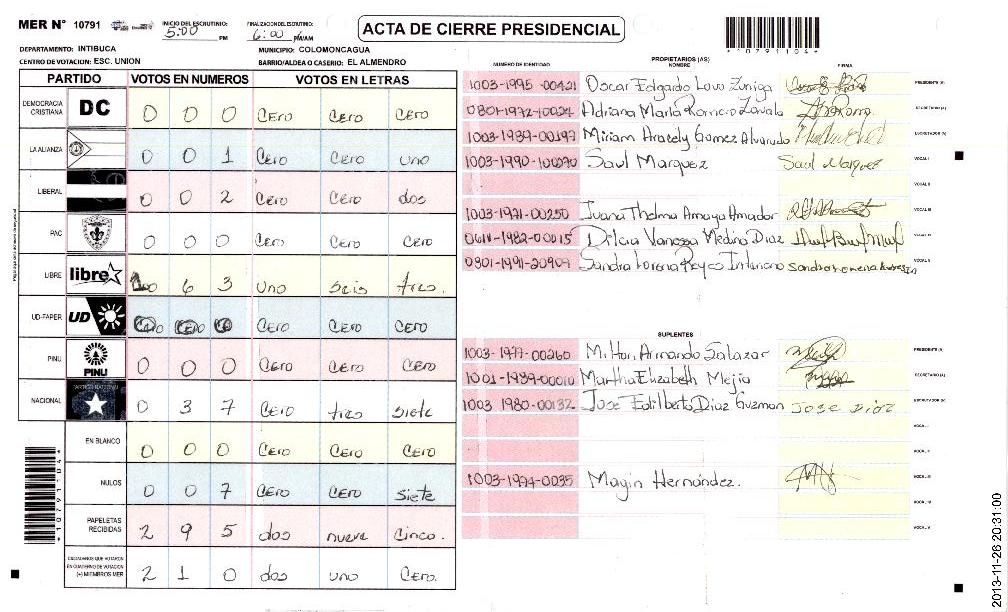 MER N° 10791
INICIO DEL ESCRUTINIO: 5:00 PM
FINALIZACION DEL ESCRUTINIO: 6:00 PM/AM
ACTA DE CIERRE PRESIDENCIAL
*10791104*
DEPARTAMENTO: INTIBUCA
MUNICIPIO: COLOMONCAGUA
CENTRO DE VOTACION: ESC. UNION
BARRIO/ALDEA O CASERIO: EL ALMENDRO
PARTIDO VOTOS EN NUMEROS VOTOS EN LETRAS
DEMOCRACIA CRISTIANA DC 0 0 0 Cero Cero Cero
LA ALIANZA 0 0 1 Cero Cero uno
LIBERAL 0 0 2 Cero Cero dos
PAC 0 0 0 Cero Cero Cero
LIBRE libre 6 3 uno seis tres.
UD-FAPER UD Cero Cero Cero
PINU PINU 0 0 0 Cero Cero Cero
NACIONAL 0 3 7 Cero tres siete
EN BLANCO 0 0 0 Cero Cero Cero
NULOS 0 0 7 Cero Cero siete
PAPELETAS RECIBIDAS 2 9 5 dos nueve Cinco.
CIUDADANOS QUE VOTARON EN CUADERNO DE VOTACION (+) MIEMBROS MER 2 1 0 dos uno Cero.
*10791104*
PROPIETARIOS (AS)
NUMERO DE IDENTIDAD NOMBRE FIRMA
1003-1995-00421 Oscar Edgardo Lovo Zuniga PRESIDENTE (A)
0801-1972-10024 Adriana Maria Romero Zavala SECRETARIO (A)
1003-1989-00197 Miriam Aracely Gomez Alvarado ESCRUTADOR (A)
1003-1990-100090 Saul Marquez Saul Marquez VOCAL I
VOCAL II
1003-1971-00250 Juana Thelma Amaya Amador VOCAL III
0611-1982-00015 Dilcia Vanessa Medina Diaz VOCAL IV
0801-1991-20909 Sandra Lorena Reyes Interiano VOCAL V
SUPLENTES
1003-1977-00260 Milton Armando Salazar PRESIDENTE (A)
1001-1989-00010 Martha Elizabeth Mejia SECRETARIO (A)
1003 1980-00132 Jose Edilberto Diaz Guzman Jose Diaz ESCRUTADOR (A)
VOCAL I
VOCAL II
1003-1994-0035 Magin Hernández. VOCAL III
VOCAL IV
VOCAL V
2013-11-26 20:31:00